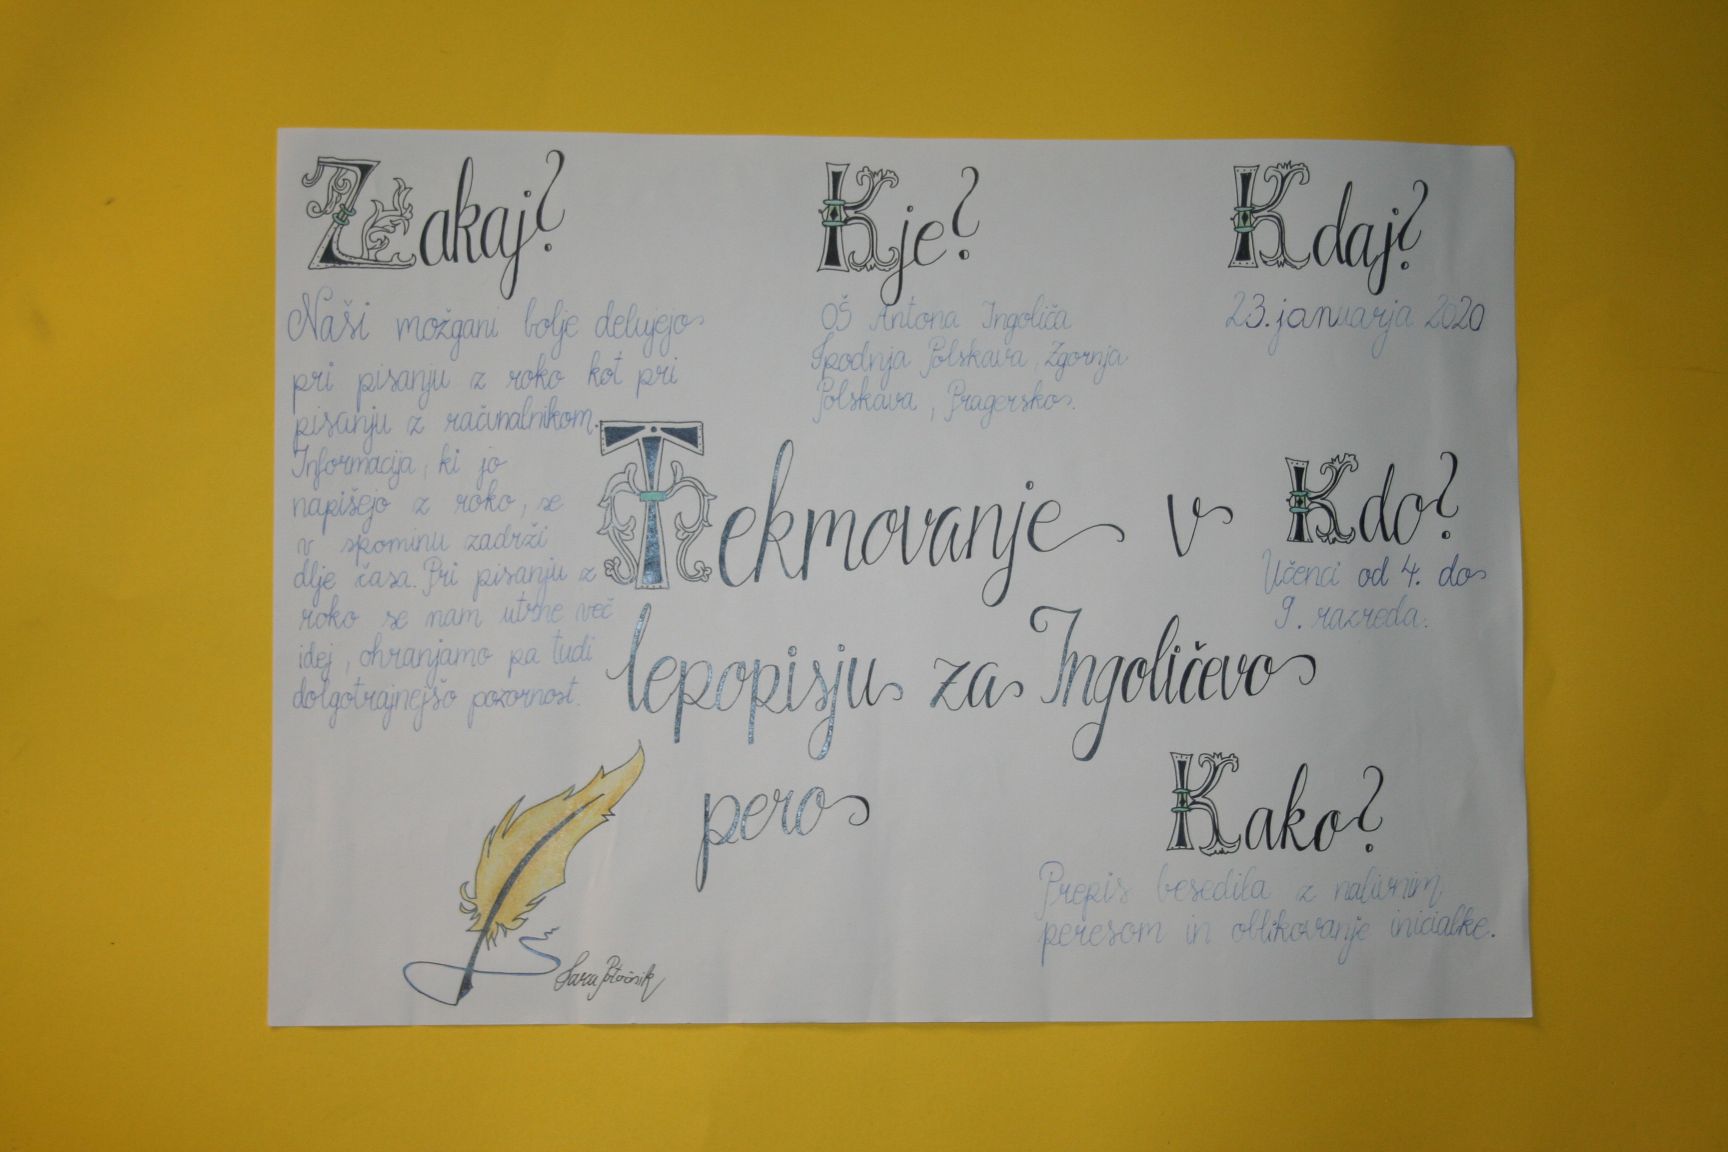 Zakaj?
Naši možgani bolje delujejo
pri pisanju z roko kot pri
pisanju z računalnikom.
Informacija, ki jo
napišejo z roko, se
v spominu zadrži
dlje časa. Pri pisanju z
roko se nam utrne več
idej, ohranjamo pa tudi
dolgotrajnejšo pozornost.
Kje?
OŠ Antona Ingoliča
Spodnja Polskava, Zgornja
Polskava, Pragersko.
Kdaj?
23. januarja 2020
Tekmovanje v
lepopisju za Ingoličevo
pero
Kdo?
Učenci od 4. do
9. razreda.
Kako?
Prepis besedila z nalivnim
peresom in oblikovanje inicialke.
Sara Potočnik